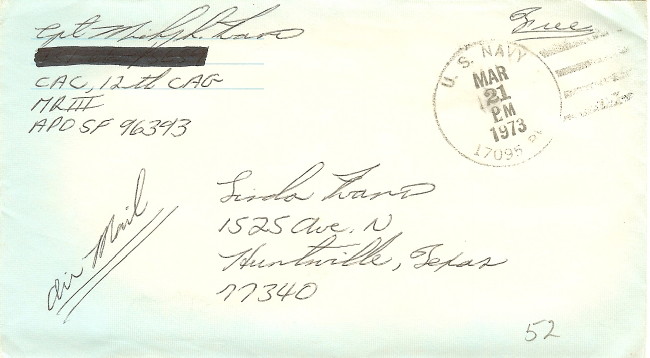 Cpt
CAC, 12th CAG
MR III
APO SF 96393
Free
U. S. NAVY
MAR
21
PM
1973
17095
Air Mail
Linda Evans
1525 Ave. N
Huntsville, Texas
77340
52